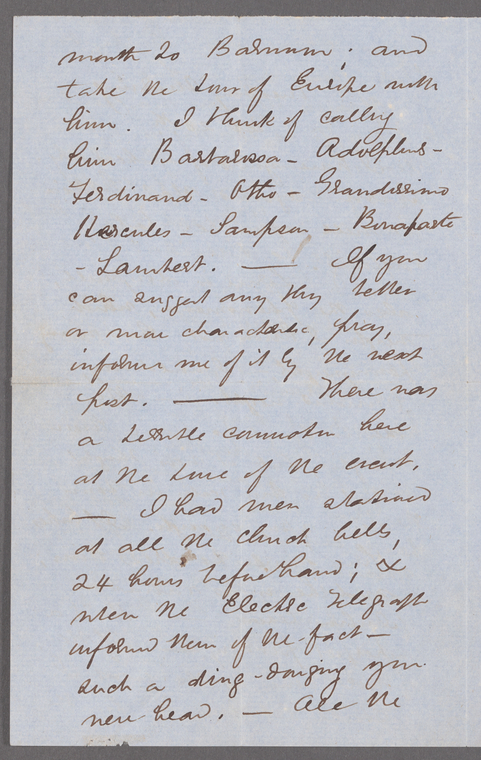 month to Barnum; and
take the tour of Europe with
him. I think of calling
him Barbarossa - Adolphus -
Ferdinand - Otho - Grandissimo
Hercules - Sampson - Bonaparte
- Lambert. — If you
can suggest any thing better
or more characteristic, pray,
inform me of it by the next
post. — There was
a terrible commotion here
at the time of the event.
— I had men stationed
at all the church bells,
24 hours before hand; &
when the Electric Telegraph
informed them of the fact —
such a ding-donging you
never heard. — All the